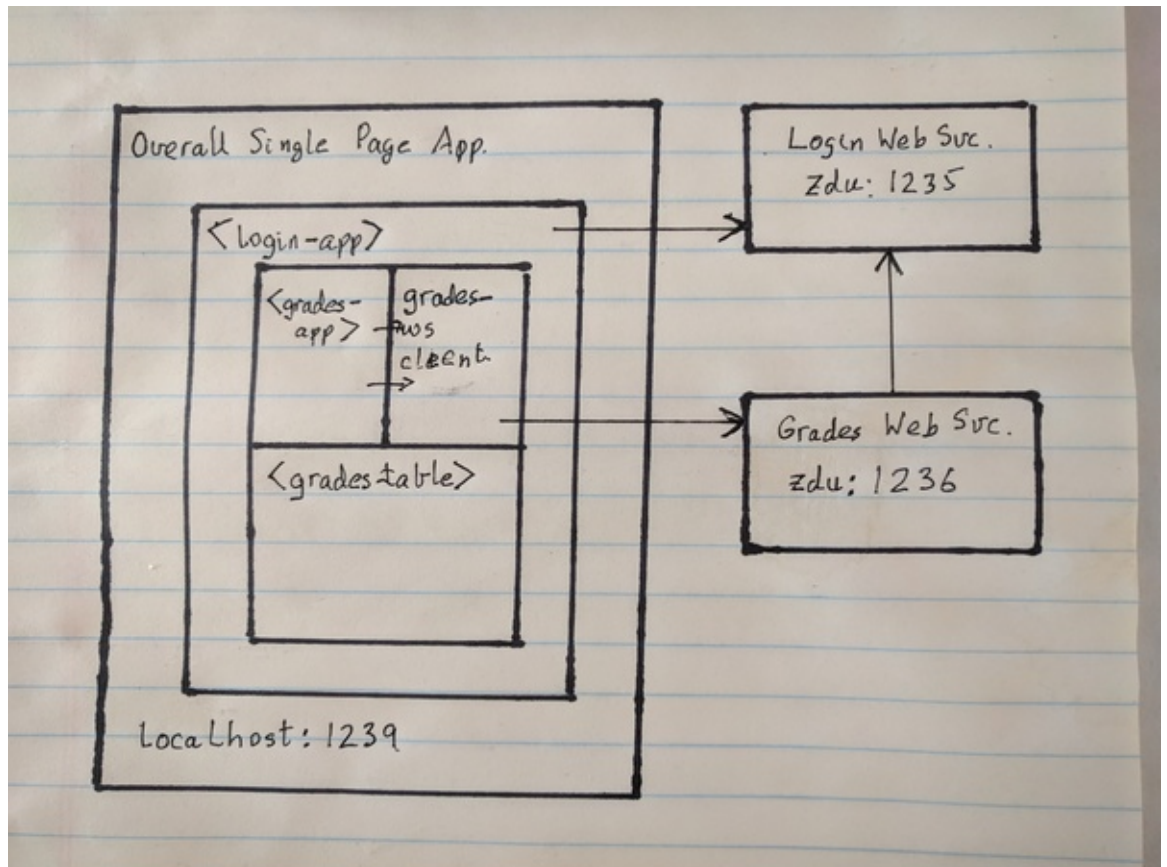 Overall Single Page App.
<login-app>
<grades-
app>
grades-
ws
client.
<grades-table>
Localhost: 1239
Login Web Svc.
Zdu: 1235
Grades Web Svc.
zdu: 1236